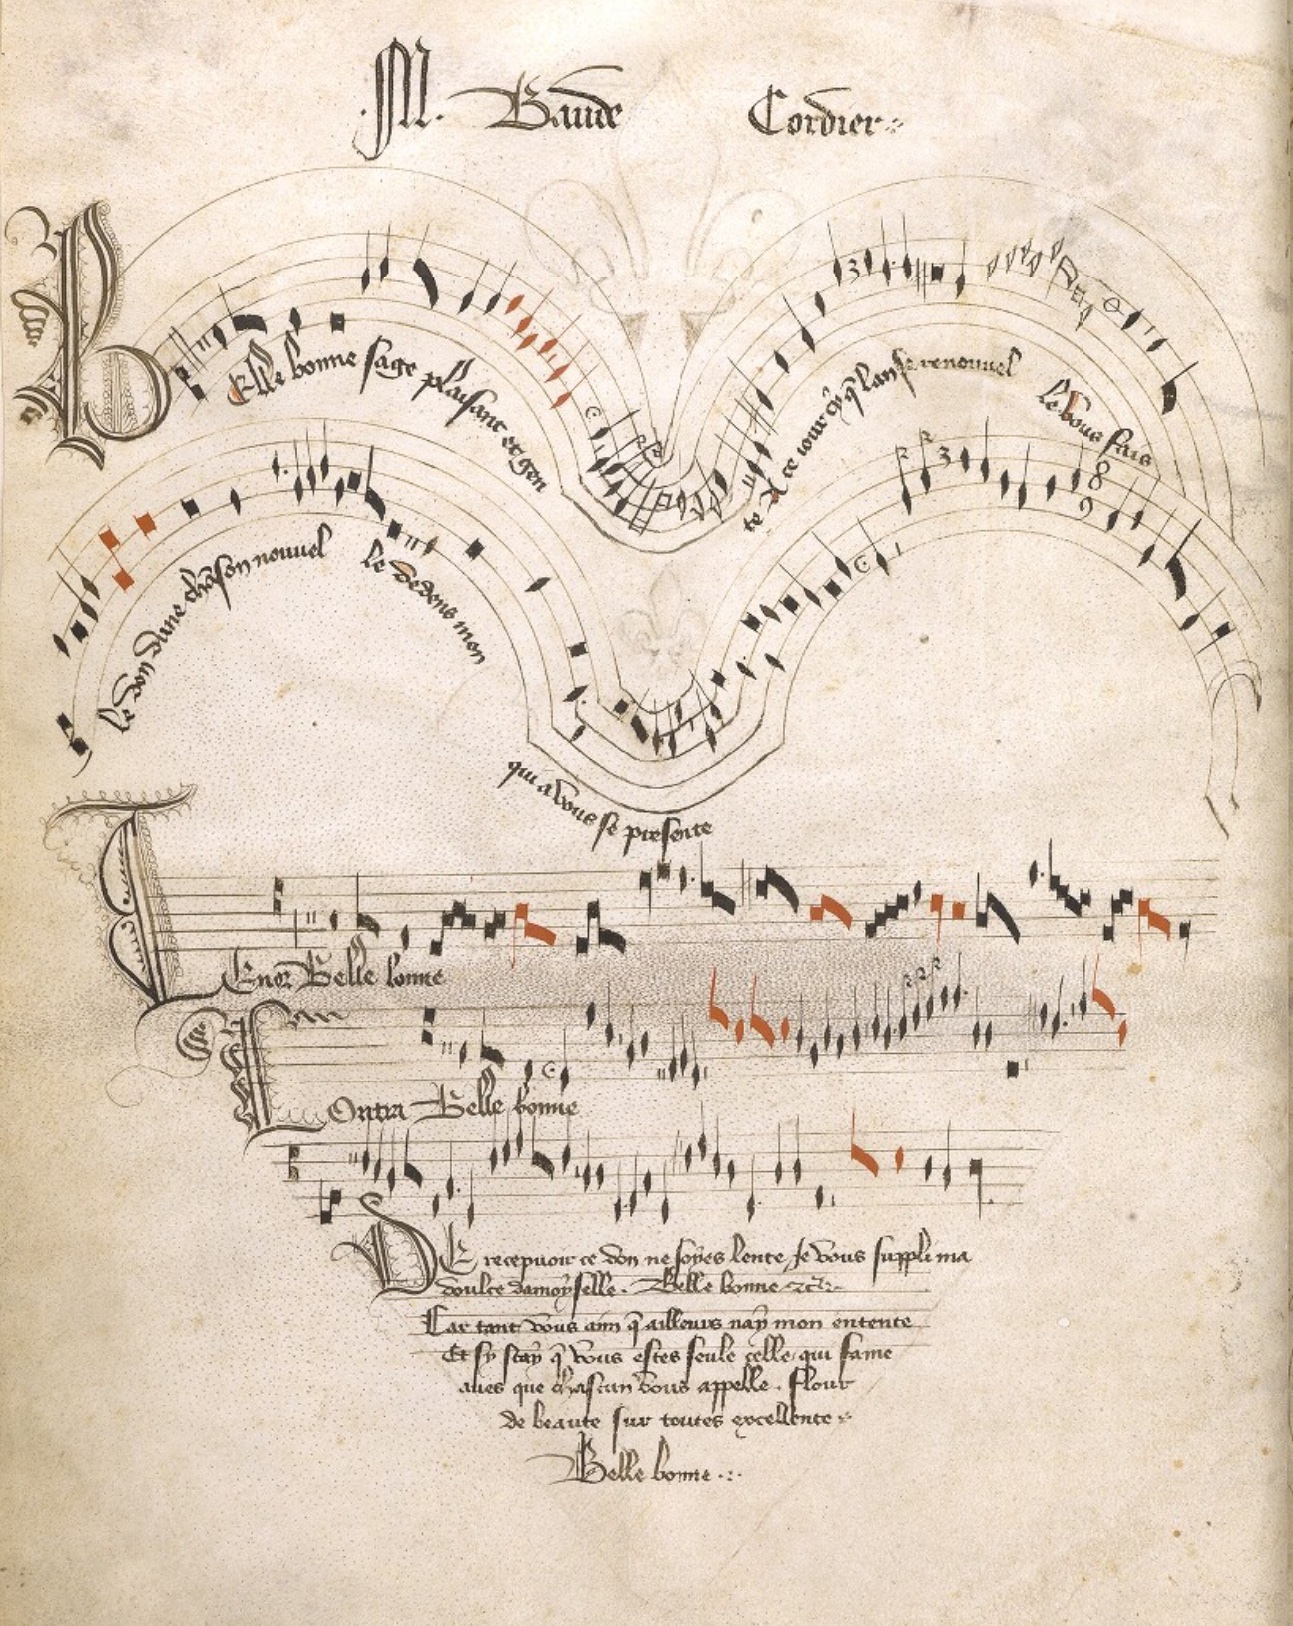 .M. Baude Cordier
BElle bonne sage plaisant et gen
te A ce iour cy q̃ lan se renouuel
le vous fais
le don dune chãson nouuel
le dedens mon
qui a vous se presente
TEnor Belle bonne
COntra Belle bonne
DE recepuoir ce don ne soyes lente Je vous suppli ma
doulce damoyselle. Belle bonne
Car tant vous aim q̃ ailleurs nay mon entente
Et sy scay q̃ vous estes seule celle qui fame
aues que chascun vous appelle. flour
de beaute sur toutes excellente
Belle bonne